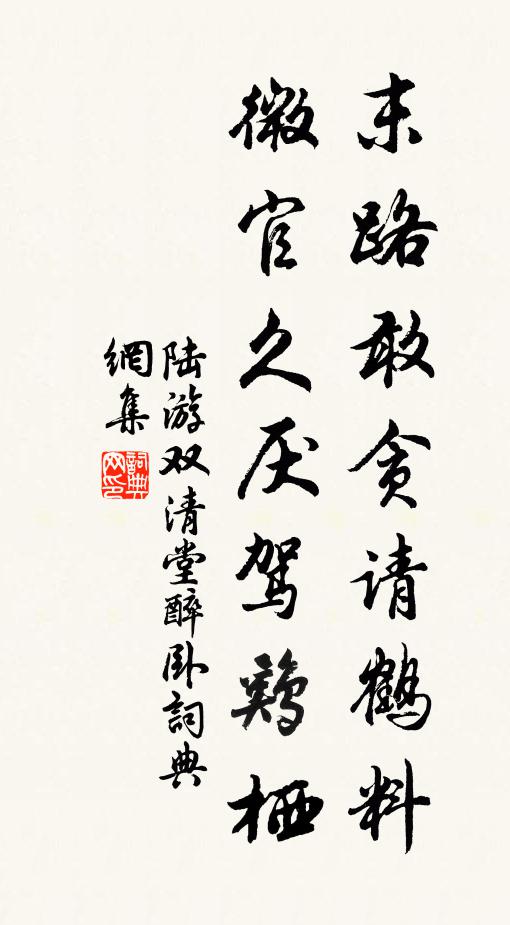 末路敢贪请鹤料
微官久厌驾鸡栖
陆游双清堂醉卧詞典
網集
詞典网印